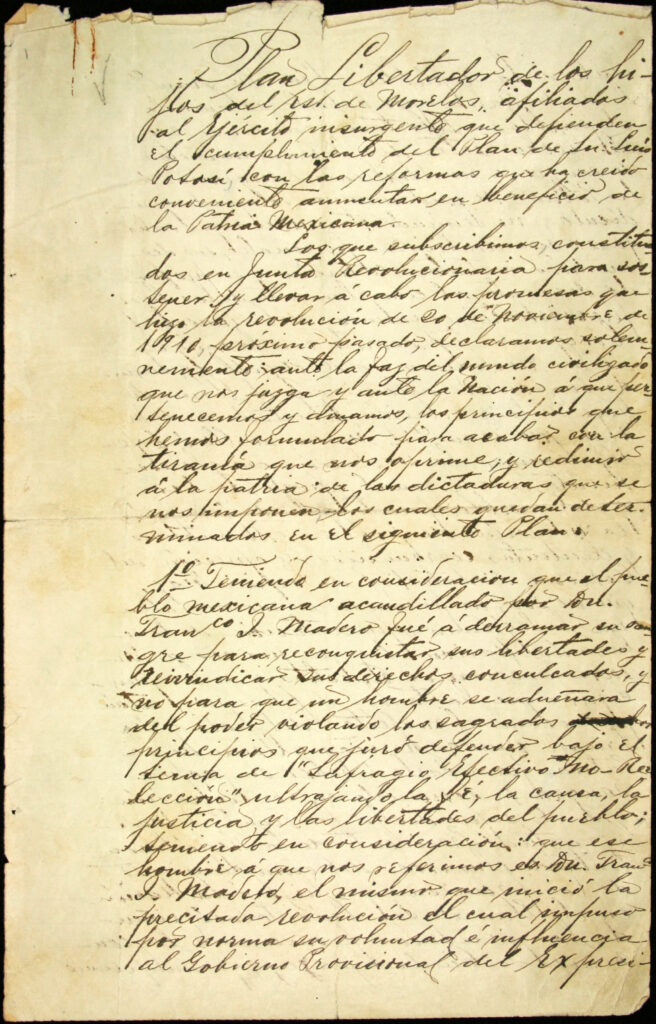 Plan Libertador de los hi-
jos del Est. de Morelos, afiliados
al Ejército insurgente que defienden
el cumplimiento del Plan de Sn. Luis
Potosí, con las reformas que ha creido
conveniente aumentar en beneficio de
la Patria Mexicana.
Los que subscribimos, constitui-
dos en Junta Revolucionaria para sos-
tener y llevar á cabo las promesas que
hizo la revolución de 20 de Noviembre de
1910, próximo pasado, declaramos solem-
nemente ante la faz del mundo civilizado
que nos juzga y ante la Nación á que per-
tenecemos y amamos, los principios que
hemos formulado para acabar con la
tiranía que nos oprime, y redimir
á la patria de las dictaduras que se
nos imponen los cuales quedan deter-
minados en el siguiente Plan.
1º Teniendo en consideracion que el pue-
blo mexicano acaudillado por Dn.
Franco I. Madero fué á derramar su san-
gre para reconquistar sus libertades y
reivindicar sus derechos conculcados, y
no para que un hombre se adueñara
del poder violando los sagrados
principios que juró defender bajo el
lema de "Sufragio Efectivo No-Ree-
lección", ultrajando la fe, la causa, la
justicia y las libertades del pueblo;
teniendo en consideración: que ese
hombre á que nos referimos es Dn. Franco
I. Madero, el mismo que inició la
precitada revolución el cual impuso
por norma su voluntad é influencia
al Gobierno Provisional del Ex presi-